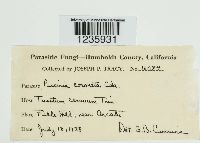 1235931
Parasitic Fungi—Humboldt County, California
Collected by JOSEPH P. TRACY. No.
Parasite Puccinia coronata Cda.
Host Trisetum cernuum Trin.
Site Fickle Hill, near Arcata
Date July 13, 1928 Det. G.B. Cummins